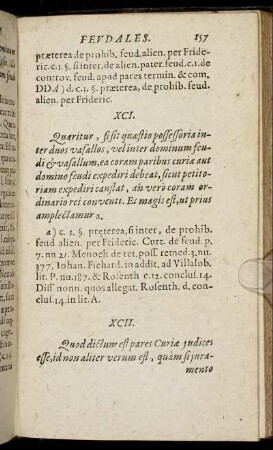 FEVDALES. 157
præterea de prohib. feud. alien. per Fride-
ric. c. 1. §. si inter, de alien. pater. feud. c. 1. de
controv. feud. apud pares termin. & com,
DD. d) d. c. 1. §. præterea, de prohib. feud.
alien. per Frideric.
XCI.
Quæritur, si sit quæstio possessoria in-
ter duos vasallos, vel inter dominum feu-
di & vasallum, ea coram paribus curiæ aut
domino feudi expediri debeat, sicut petito-
riam expediri constat, an verò coram or-
dinario rei conventi. Et magis est, ut prius
amplectamur a.
a) c. 1. §. præterea, si inter, de prohib.
feud alien. per Frideric. Curt. de feud. p.
7. nu 21. Menoch de ret. poss. remed. 3. nu.
377. Iohan. Fichard. in addit, ad Villalob.
lit. P. nu. 187. & Rosenth c. 12. conclus. 14.
Diss nonn. quos allegat. Rosenth. d. con-
clus. 14. in lit. A.
XCII.
Quod dictum est pares Curiæ judices
esse, id non aliter verum est, quàm si jura-
mento